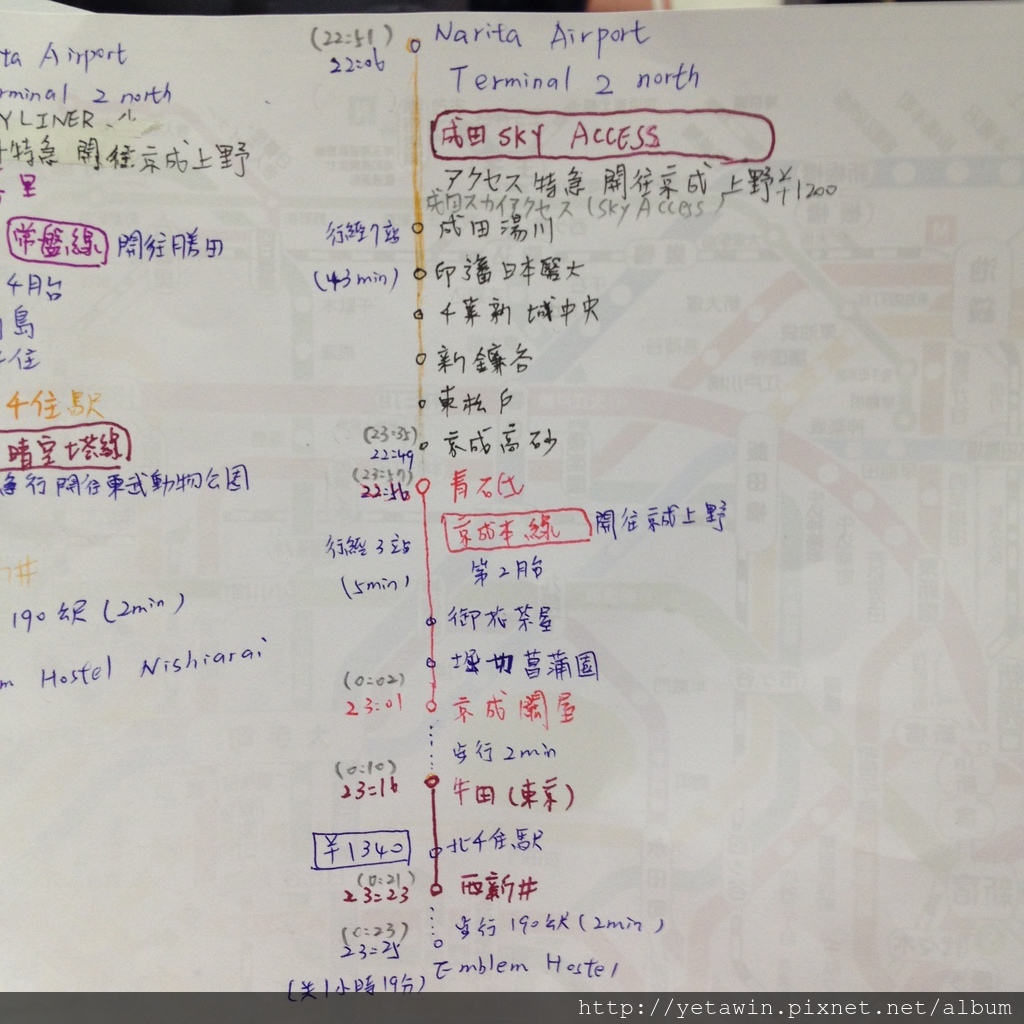 ta Airport
rminal 2 north
YLINER
特急 開往京成上野
里
常盤線 開往勝田
4月台
島
住
千住駅
晴空塔線
急行開往東武動物公園
井
190公尺(2min)
m Hostel Nishiarai
(22:51) Narita Airport
22:06
Terminal 2 north
成田 SKY ACCESS
アクセス特急 開往京成上野 ¥1200
成田スカイアクセス (Sky Access)
行經7站 成田湯川
(43min) 印旛日本醫大
千葉新城中央
新鎌谷
東松戶
(23:35) 京成高砂
22:49
(23:57)
22:56 青石氏
京成本線 開往京成上野
行經3站 第2月台
(5min)
御花茶屋
堀切菖蒲園
(0:02)
23:01 京成關屋
步行2min
(0:10)
23:16 牛田(東京)
¥1340 北千住駅
(0:21)
23:23 西新井
步行190公尺(2min)
(0:23)
23:25
Emblem Hostel
(共1小時19分)
http://yetawin.pixnet.net/album